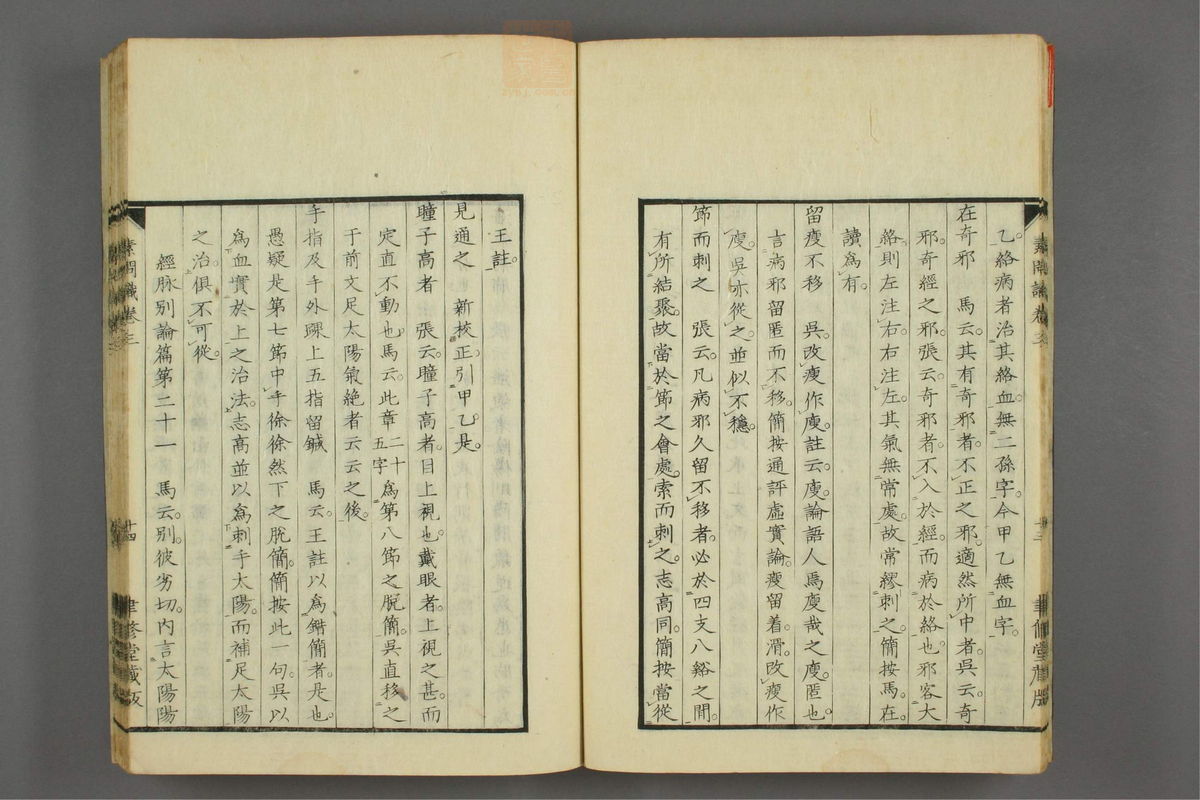 乙。絡病者治其絡血。無二孫字。今甲乙無血字。
在奇邪　馬云。其有奇邪者。不正之邪。適然所中者。吳云。奇
邪。奇經之邪。張云。奇邪者。不入於經而病於絡也。邪客大
絡。則左注右。右注左。其氣無常處。故當繆刺之。簡按馬。在
讀為有。
留瘦不移　吳。改瘦作廋。註云。廋。論語人焉廋哉之廋。匿也。
言病邪留匿而不移。簡按通評虛實論。瘦留着。滑。改瘦作
廋。吳亦從之。並似不穩。
節而刺之　張云。凡病邪久留不移者。必於四支八谿之間。
有所結聚。故當於節之會處。索而刺之。志高同。簡按當從
王註。
見通之　新校正。引甲乙。是。
瞳子高者　張云。瞳子高者。目上視也。戴眼者。上視之甚。而
定直不動也。馬云。此章二十五字為第八節之脫簡。吳直移之
于前文足太陽氣絕者云云之後。
手指及手外踝上五指留鍼　馬云。王註以為錯簡者。是也。
愚疑是第七節中。手徐徐然下之脫簡。簡按此一句。吳以
為血實於上之治法。志高並以為刺手太陽。而補足太陽
之治。俱不可從。
經脈別論篇第二十一　馬云。別。彼劣切。內言太陽陽
素問識卷三
十三
聿修堂藏版
素問識卷三
十四
聿修堂藏版